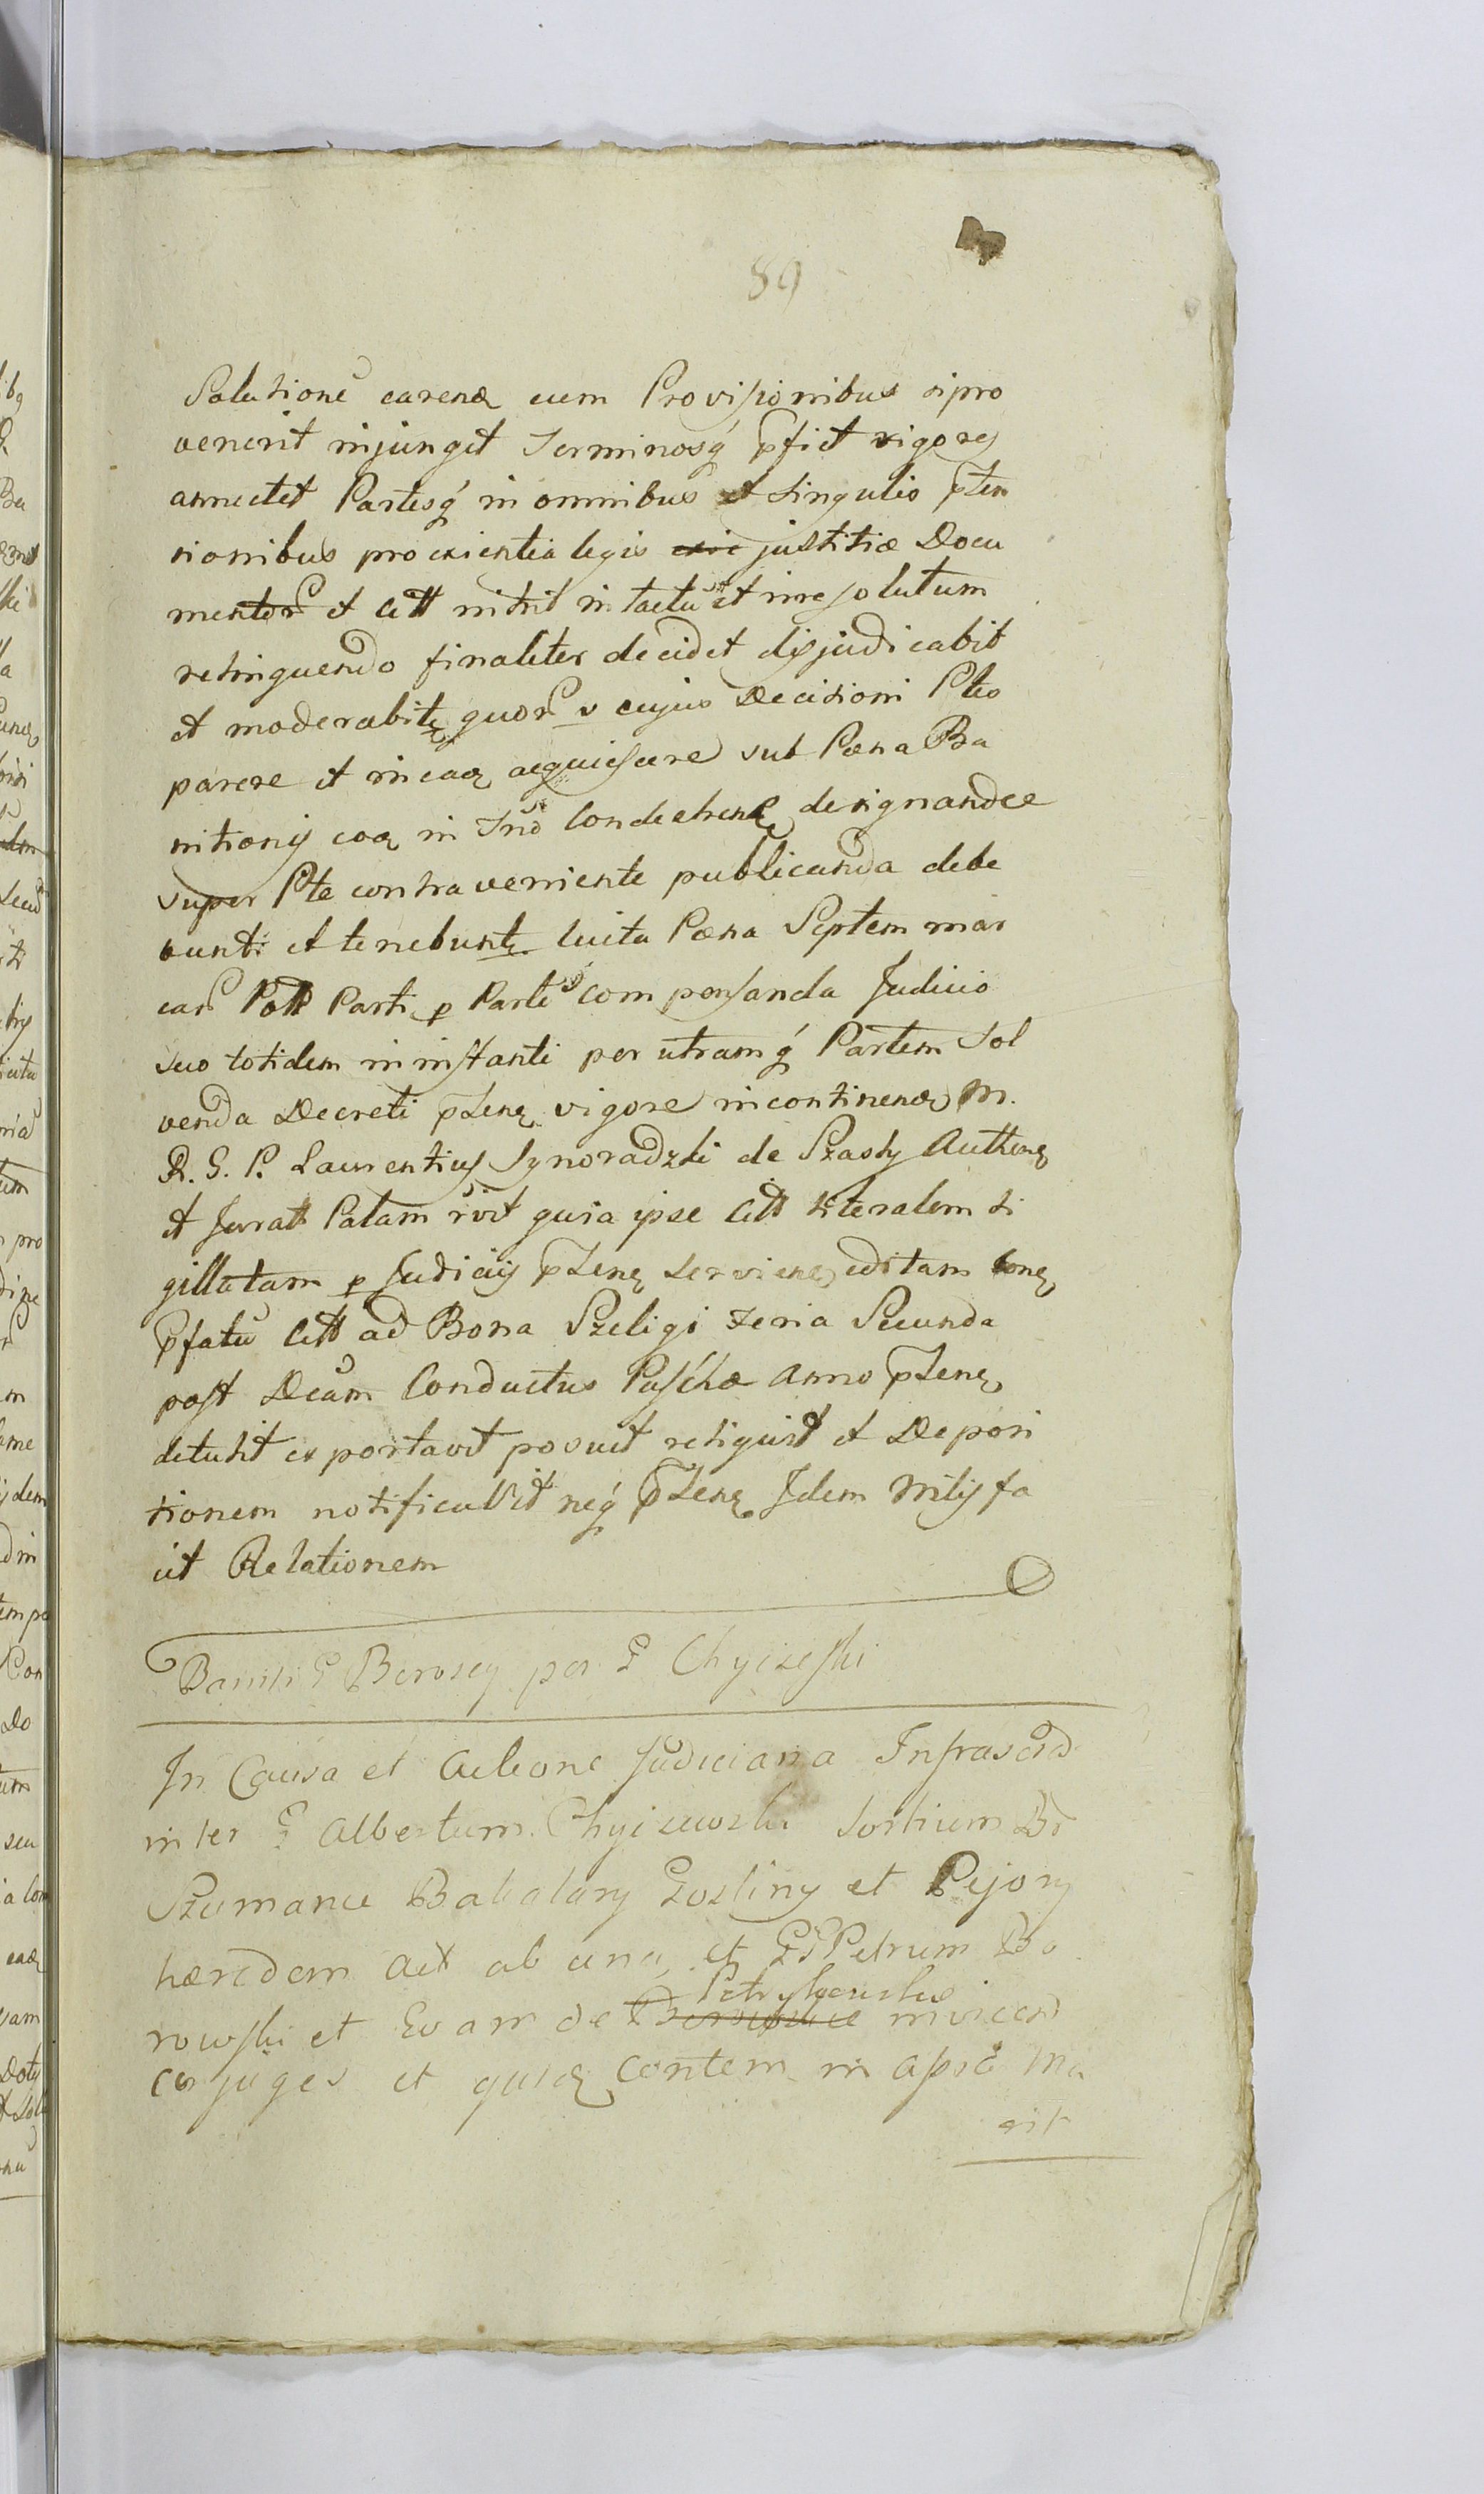 89
Solutione carend cum Provisionibus si pro
venerit injunget Terminosq́ pfiet rigores
annectet Partesq́ in omnibus et singulis pten
sionibus pro exientia legis justitiæ Docu
mentor et Citt nihil intactū et irresolutum
relinquendo finaliter decidet disjudicabit
et moderabitę quor v cujus Decisioni Ptes
parere et in eaq acquiescere sub Pœna Ba
nitionis eoq in Condescens designandæ
super Pte contraveniente publicanda debe
bunt et tenebuntę luita Pœna Septem mar
car Poll Parti p Partē compensanda Judicio
suo totidem in instanti per utramq́ Partem Sol
venda Decreti ptenę vigore incontinend M.
R. G. P. Laurentius Synoradzki de Szasty Authenę
et Jurat Palam rvit quia ipse Citt literalem si
gillatam p Judiciis ptenę serviene editam
pfatū Citt ad Bona Szeligi Feria Secunda
post Dcam Conductus Paschæ Anno ptenę
detulit exportavit posuit reliquit et Deposi
tionem notificavit neq́ ptenę Idem Milis fe
cit Relationem
Per G Chyczeski
In Causa et Actione Judiciaria Infrascrd
inter G Albertum Chyczewski Sortium Br
Szumance Bakalary Gostiny et Pejory
hæredem Act ab una, et GG Petrum Bo
rowski et Evam de Petrykowskie invicem
conjuges et quosę contem in apsō Ma